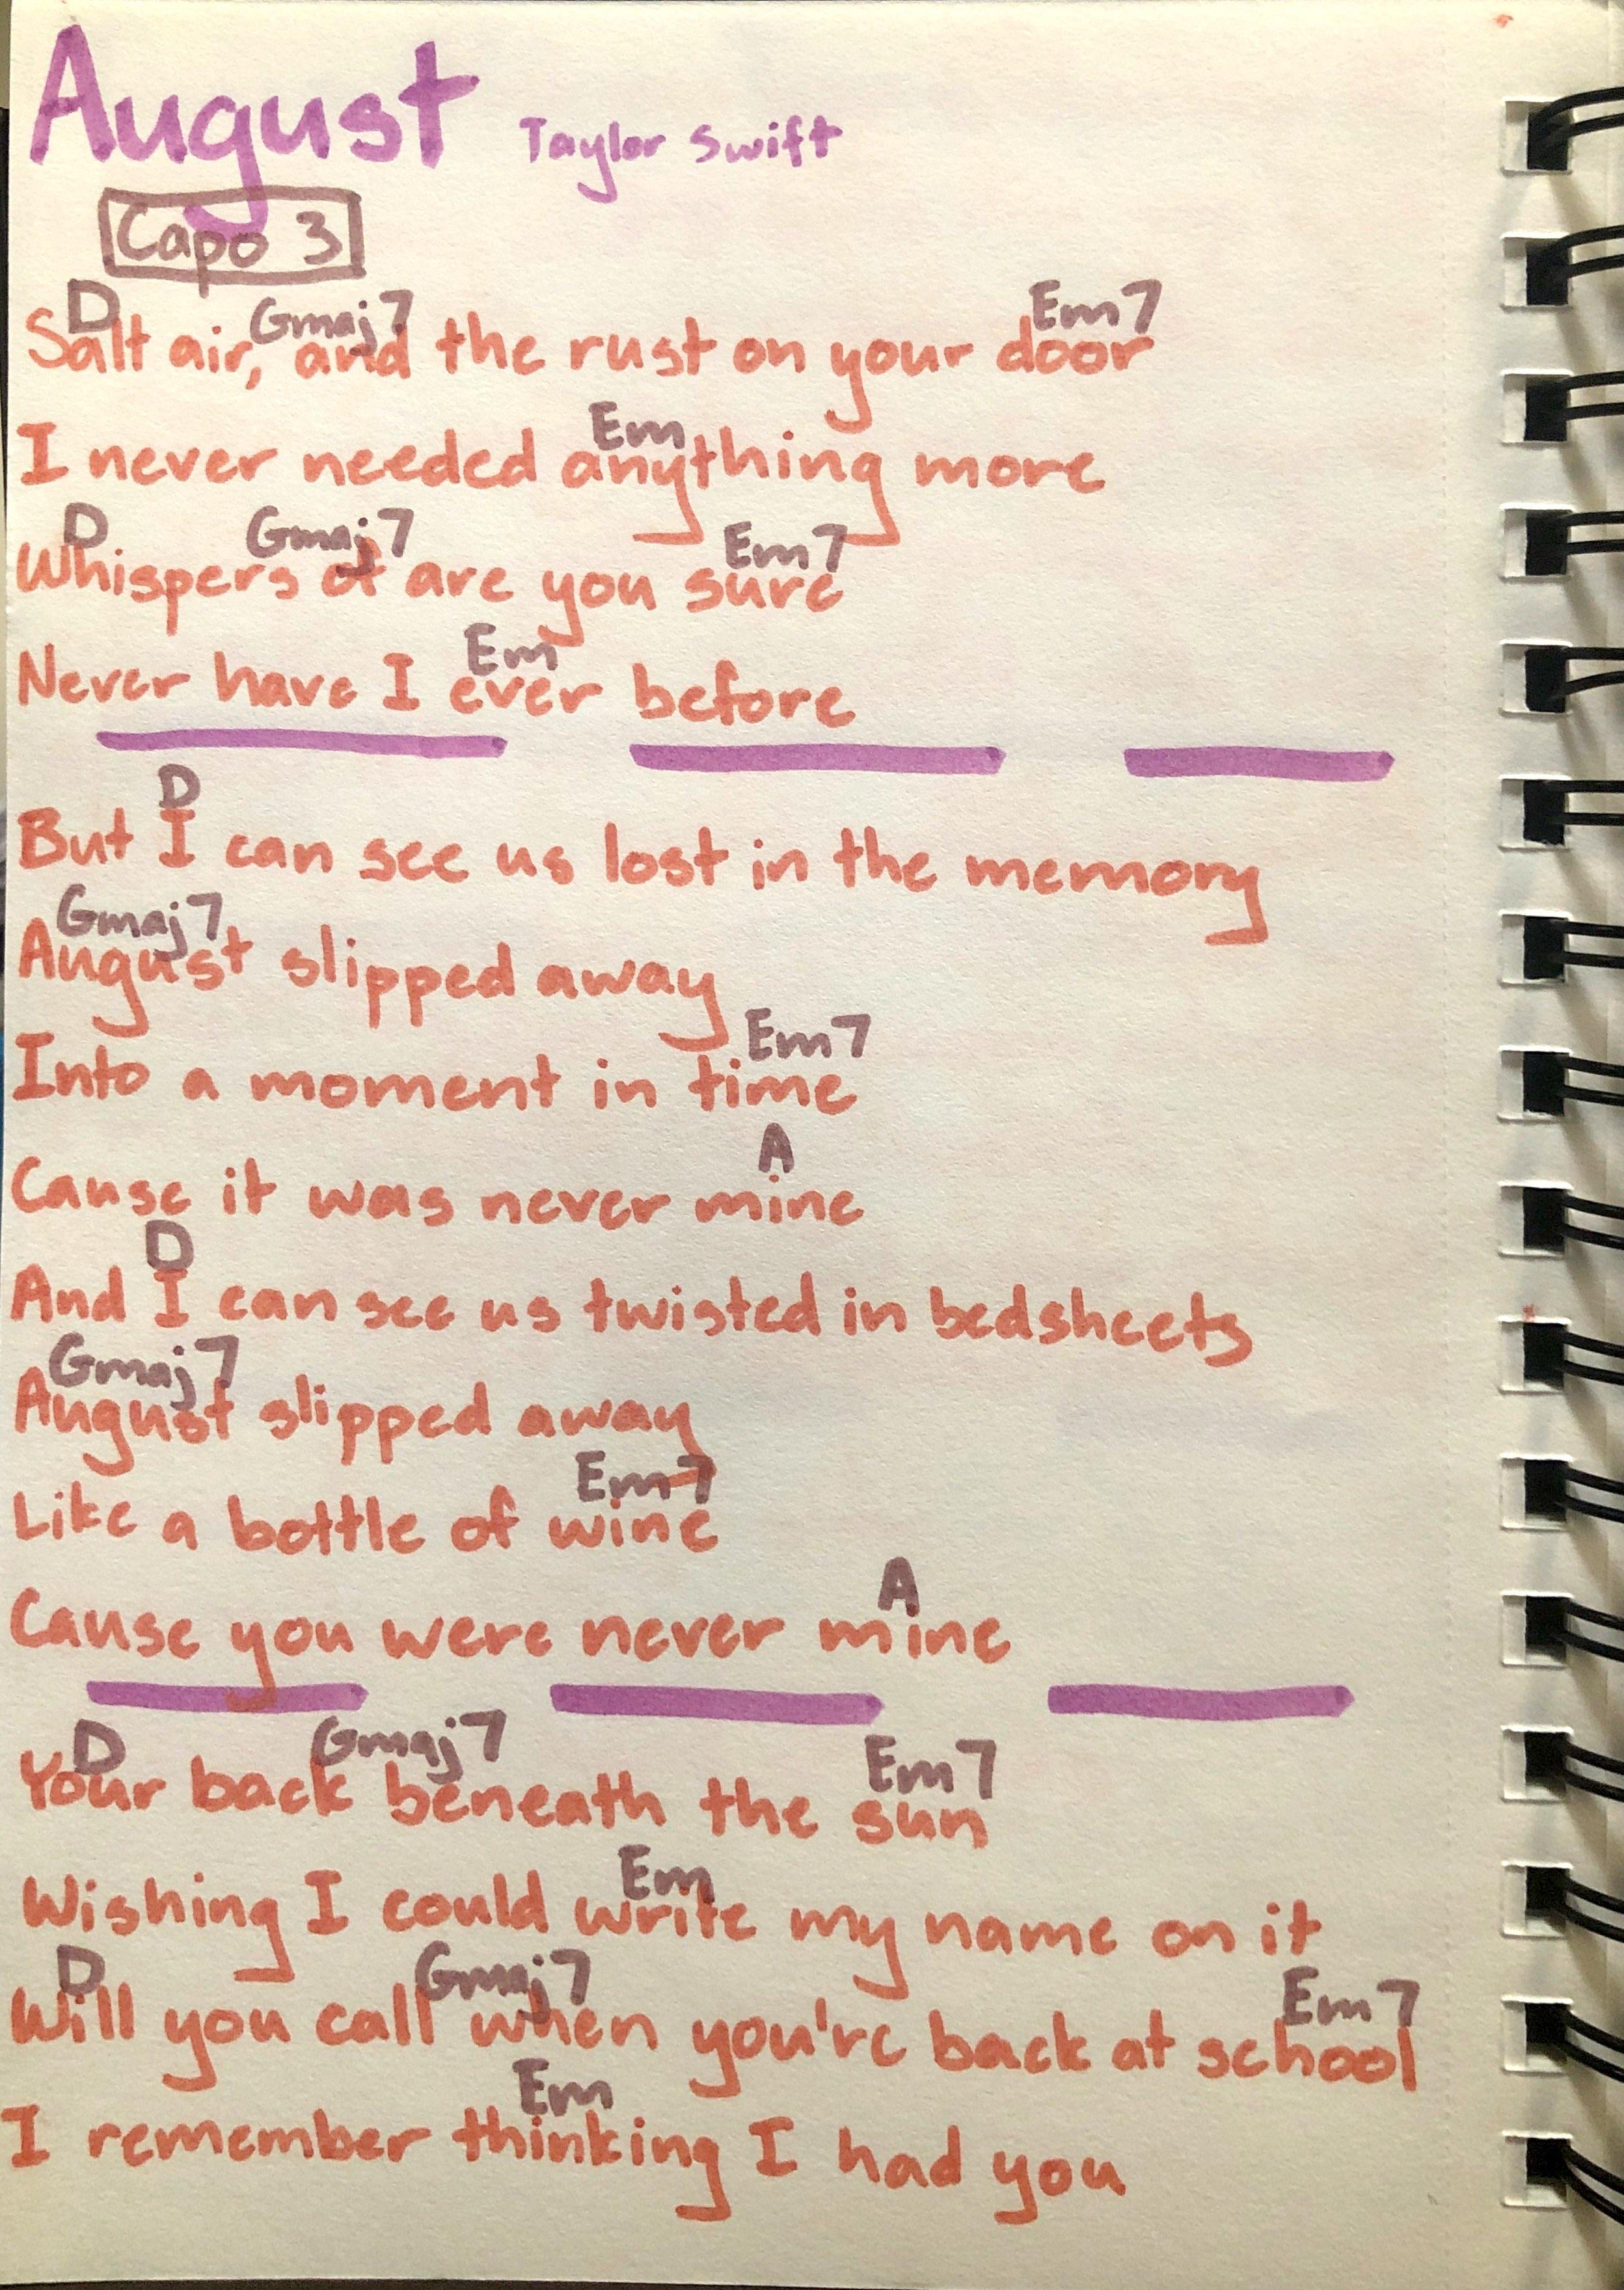 August Taylor Swift
Capo 3
D Gmaj7 Em7
Salt air, and the rust on your door
Em
I never needed anything more
D Gmaj7 Em7
Whispers of are you sure
Em
Never have I ever before
D
But I can see us lost in the memory
Gmaj7
August slipped away
Em7
Into a moment in time
A
Cause it was never mine
D
And I can see us twisted in bedsheets
Gmaj7
August slipped away
Em7
Like a bottle of wine
A
Cause you were never mine
D Gmaj7 Em7
Your back beneath the sun
Em
Wishing I could write my name on it
D Gmaj7 Em7
Will you call when you're back at school
Em
I remember thinking I had you